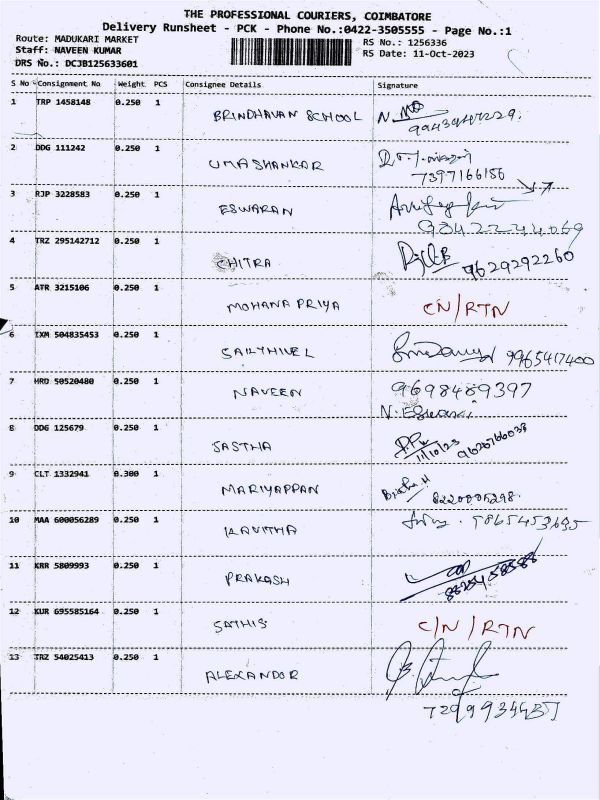 THE PROFESSIONAL COURIERS, COIMBATORE
Delivery Runsheet - PCK - Phone No.:0422-3505555 - Page No.:1
Route: MADUKARI MARKET
Staff: NAVEEN KUMAR
DRS No.: DCJB125633601
RS No.: 1256336
RS Date: 11-Oct-2023
S No Consignment No Weight PCS Consignee Details Signature
1 TRP 1458148 0.250 1 BRINDHAVAN SCHOOL
2 DDG 111242 0.250 1 UMASHANKAR
7397166156
3 RJP 3228583 0.250 1 ESWARAN
9842224069
4 TRZ 295142712 0.250 1 CHITRA 9629292260
5 ATR 3215106 0.250 1 MOHANA PRIYA CN/RTN
6 IXM 504835453 0.250 1 SAILTHIVEL 9965417400
7 HRD 50520480 0.250 1 NAVEEN 9698489397
N. Eswarai
8 DDG 125679 0.250 1 SASTHA
11/10/23 9626766038
9 CLT 1332941 0.300 1 MARIYAPPAN 8220005298
10 MAA 600056289 0.250 1 KAVITHA 9865453695
11 KRR 5809993 0.250 1 PRAKASH
8825458588
12 KUR 695585164 0.250 1 SATHIS C/N/RTN
13 TRZ 54025413 0.250 1 ALEXANDOR